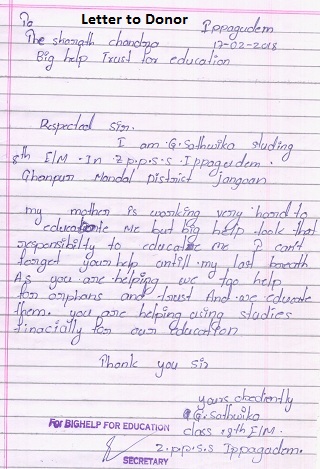 Letter to Donor
To
Ippagudem
The sharath chandra
17-02-2018
Big help Trust for education
Respected Sir.
I am G. Sathwika studing
8th E/M. In Z.p.p.s.s. Ippagudem.
Ghanpur Mandal District Jangaon
my mother is working very hard to
educate me but Big help took that
responsibilty to educate me I can't
forget your help untill my last breath
As you are helping we too help
for orphans and trust And we educate
them. you are helping using studies
finacially for our education
Thank you Sir
yours obediently
G. Sathwika
class :8th E/M.
Z.p.p.s.s Ippagudem.
For BIGHELP FOR EDUCATION
SECRETARY